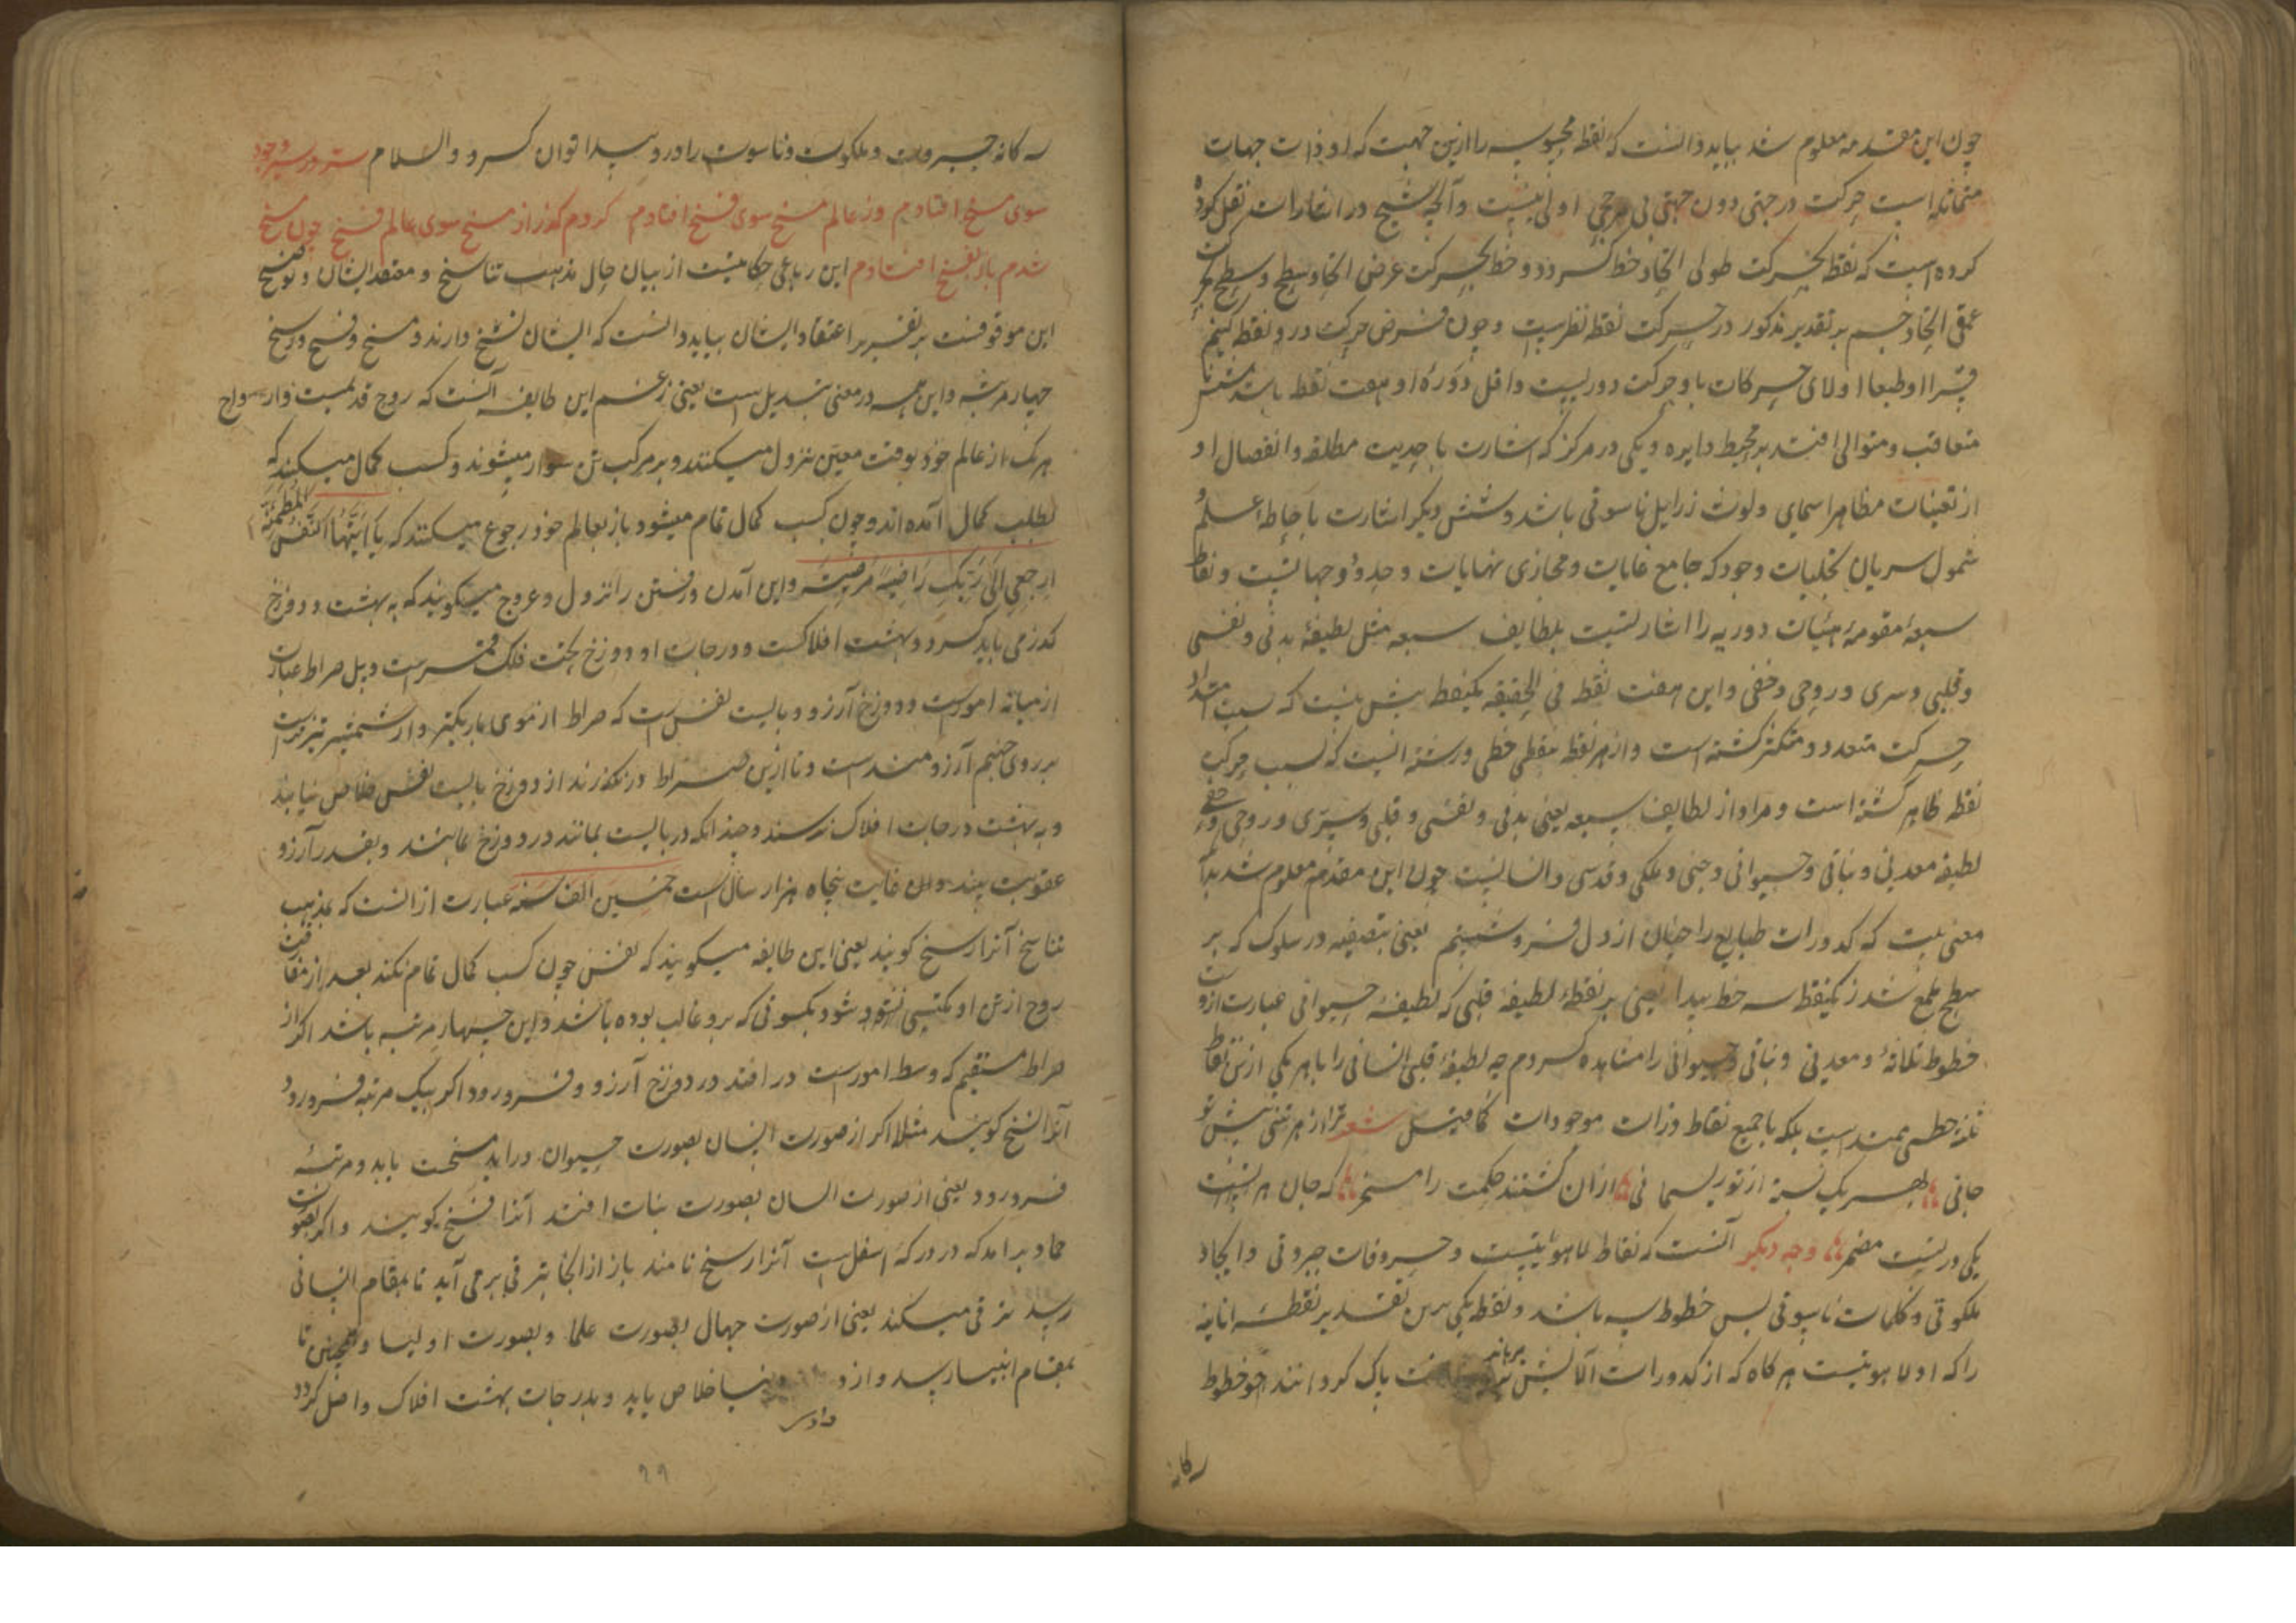 چون این مقدمه معلوم شد بباید دانست که نقطه محبوسه را ازین جهت که او ذات جهات
متماثله است حرکت در جهتی دون جهتی بی مرجحی اولی نیست و آنچه شیخ در اشارات نقل کرده
کرده است که نقطه بحرکت طولی ایجاد خط کرد و خط بحرکت عرض ایجاد سطح و سطح بحرکت
عمقی ایجاد جسم بر تقدیر مذکور در حرکت نقطه نظریست و چون فرض حرکت در و نقطه کنیم
قسرا او طبعا اولای حرکات با و حرکت دوریست و اقل دوره او هفت نقطه باشد شش نا
متعاقب و متوالی افتد بر محیط دایره و یکی در مرکز که اشارت باحدیت مطلقه و انفصال او
از تعینات مظاهر اسمای و لوث زرایل ناسوتی باشد و شش دیگر اشارت باحاطه علم و
شمول سریان تجلیات وجود که جامع غایات و مجازی نهایات و حدود جهاتست و نقاط
سبعه مقومه هیئات دوریه را اشارتست بلطایف سبعه مثل لطیفه بدنی و نفسی
و قلبی و سری و روحی و خفی و این هفت نقطه فی الحقیقه یکنقطه بیش نیست که بسبب امتداد
حرکت متعدد و متکثر گشته است و از هر نقطه بنقطه خطی و رشته ایست که بسبب حرکت
نقطه ظاهر گشته است و مراد از لطایف سبعه یعنی بدنی و نفسی و قلبی و سری و روحی و خفی
لطیفه معدنی و نباتی و حیوانی و جنی و ملکی و قدسی و انسانیست چون این مقدمه معلوم شد بدانکه
معنی بیت که کدورات طبایع را چنان از دل فرو شستم یعنی بتصفیه در سلوک که بر
سطح ملمع شد ز یکنقطه سه خط پیدا یعنی بر نقطه لطیفه قلبی که لطیفه حیوانی عبارت ازوست
خطوط ثلاثه و معدنی و نباتی و حیوانی را مشاهده کردم چه لطیفه قلبی انسانی را با هر یکی ازین نقاط
ثلثه خطی ممتد است بلکه با جمیع نقاط ذرات موجودات کما قیل شعر ترا از هر تنی پیش تو
جانی بهر یک نسبت از تو ریسمانی ازان گشتند حکمت را مسخر که جان هر یکیست
یکی در تست مضمر وجه دیگر آنست که نقاط لاهوتیست و حروفات جبروتی و ایجاد
ملکوتی و کلمات ناسوتی پس خطوط سه باشد و نقطه یکی برین تقدیر نقطه انانیه
را که او لاهوتیست هرگاه که از کدورات آلایش پاک گردانند خطوط
رگانه
سه گانه جبروت و ملکوت و ناسوت را درو پیدا توان کرد و السلام ستر در سیر وجود
سوی مسخ افتادم وز عالم مسخ سوی فسخ افتادم کردم گذر از مسخ سوی عالم فسخ چون مسخ
شدم باز بفسخ افتادم این رباعی حکایتست از بیان حال مذهب تناسخ و مقصد ایشان و توضیح
این موقوفست بر تقریر اعتقاد ایشان بباید دانست که ایشان نسخ دارند و مسخ و فسخ و رسخ
چهار مرتبه و این همه در معنی تبدیل است یعنی زعم این طایفه آنست که روح قدیمست و ارواح
هر یک از عالم خود بوقت معین نزول میکنند و بر مرکب تن سوار میشوند و کسب کمال میکنند که
بطلب کمال آمده اند و چون کسب کمال تمام میشود باز بعالم خود رجوع میکنند که یا ایتها النفس المطمئنه
ارجعی الی ربک راضیة مرضیة و این آمدن و رفتن را نزول و عروج میگویند که به بهشت و دوزخ
گذر می باید کرد و بهشت افلاکست و درجات او و دوزخ تحت فلک قمرست و پل صراط عبارت
از میانه امورست و دوزخ آرزو و بایست نفس است که صراط از موی باریکتر و از شمشیر تیزترست
بر روی جهنم آرزومندست و تا ازین صراط درنگذرند از دوزخ بایست نفس خلاص نیابند
و به بهشت درجات افلاک نرسند و چندانکه در بایست بمانند در دوزخ باشند و بقدر آرزو
عقوبت بینند و ان غایت پنجاه هزار سال است خمسین الف سنه عبارت از انست که بمذهب
تناسخ آنرا رسخ گویند یعنی این طایفه میگویند که نفس چون کسب کمال تمام نکند بعد از مفارقت
روح از تن او مکتسی شود بکسوتی که برو غالب بوده باشد و این چهار مرتبه باشد اگر از
صراط مستقیم که وسط امورست در افتد در دوزخ آرزو و فرو رود اگر بیک مرتبه فرو رود
آنرا نسخ گویند مثلا اگر از صورت انسان بصورت حیوان دراید مسخت یابد و مرتبه
فرو رود یعنی از صورت انسان بصورت نبات افتد آنرا فسخ گویند و اگر بصورت
جماد براید که در درکه اسفل است آنرا رسخ نامند باز از انجا بترقی برمی آید تا بمقام انسانی
رسد ترقی میکند یعنی از صورت جهال بصورت علما و بصورت اولیا و همچنین تا
بمقام انبیا رسد و از خلاص یابد و بدرجات بهشت افلاک واصل گردد
۹۹